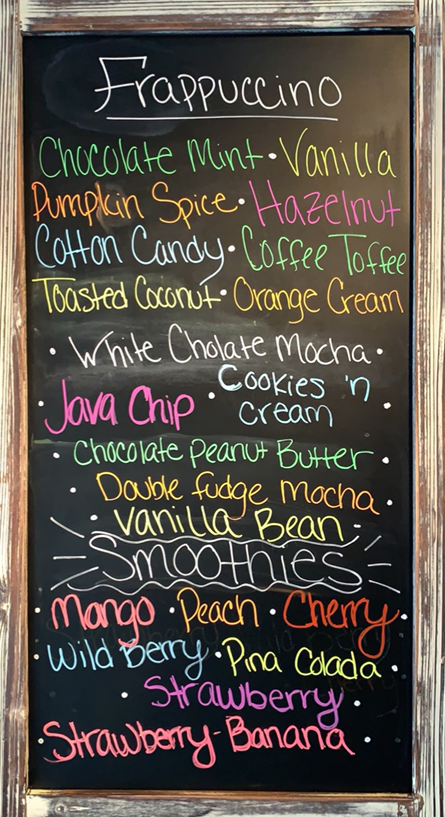 Frappuccino
Chocolate Mint • Vanilla
Pumpkin Spice • Hazelnut
Cotton Candy • Coffee Toffee
Toasted Coconut • Orange Cream
• White Cholate Mocha •
• Java Chip • Cookies 'n
cream
• Chocolate Peanut Butter •
• Double fudge Mocha •
• Vanilla Bean •
Smoothies
• Mango • Peach • Cherry •
Wild Berry • Pina Colada •
• Strawberry •
• Strawberry-Banana •